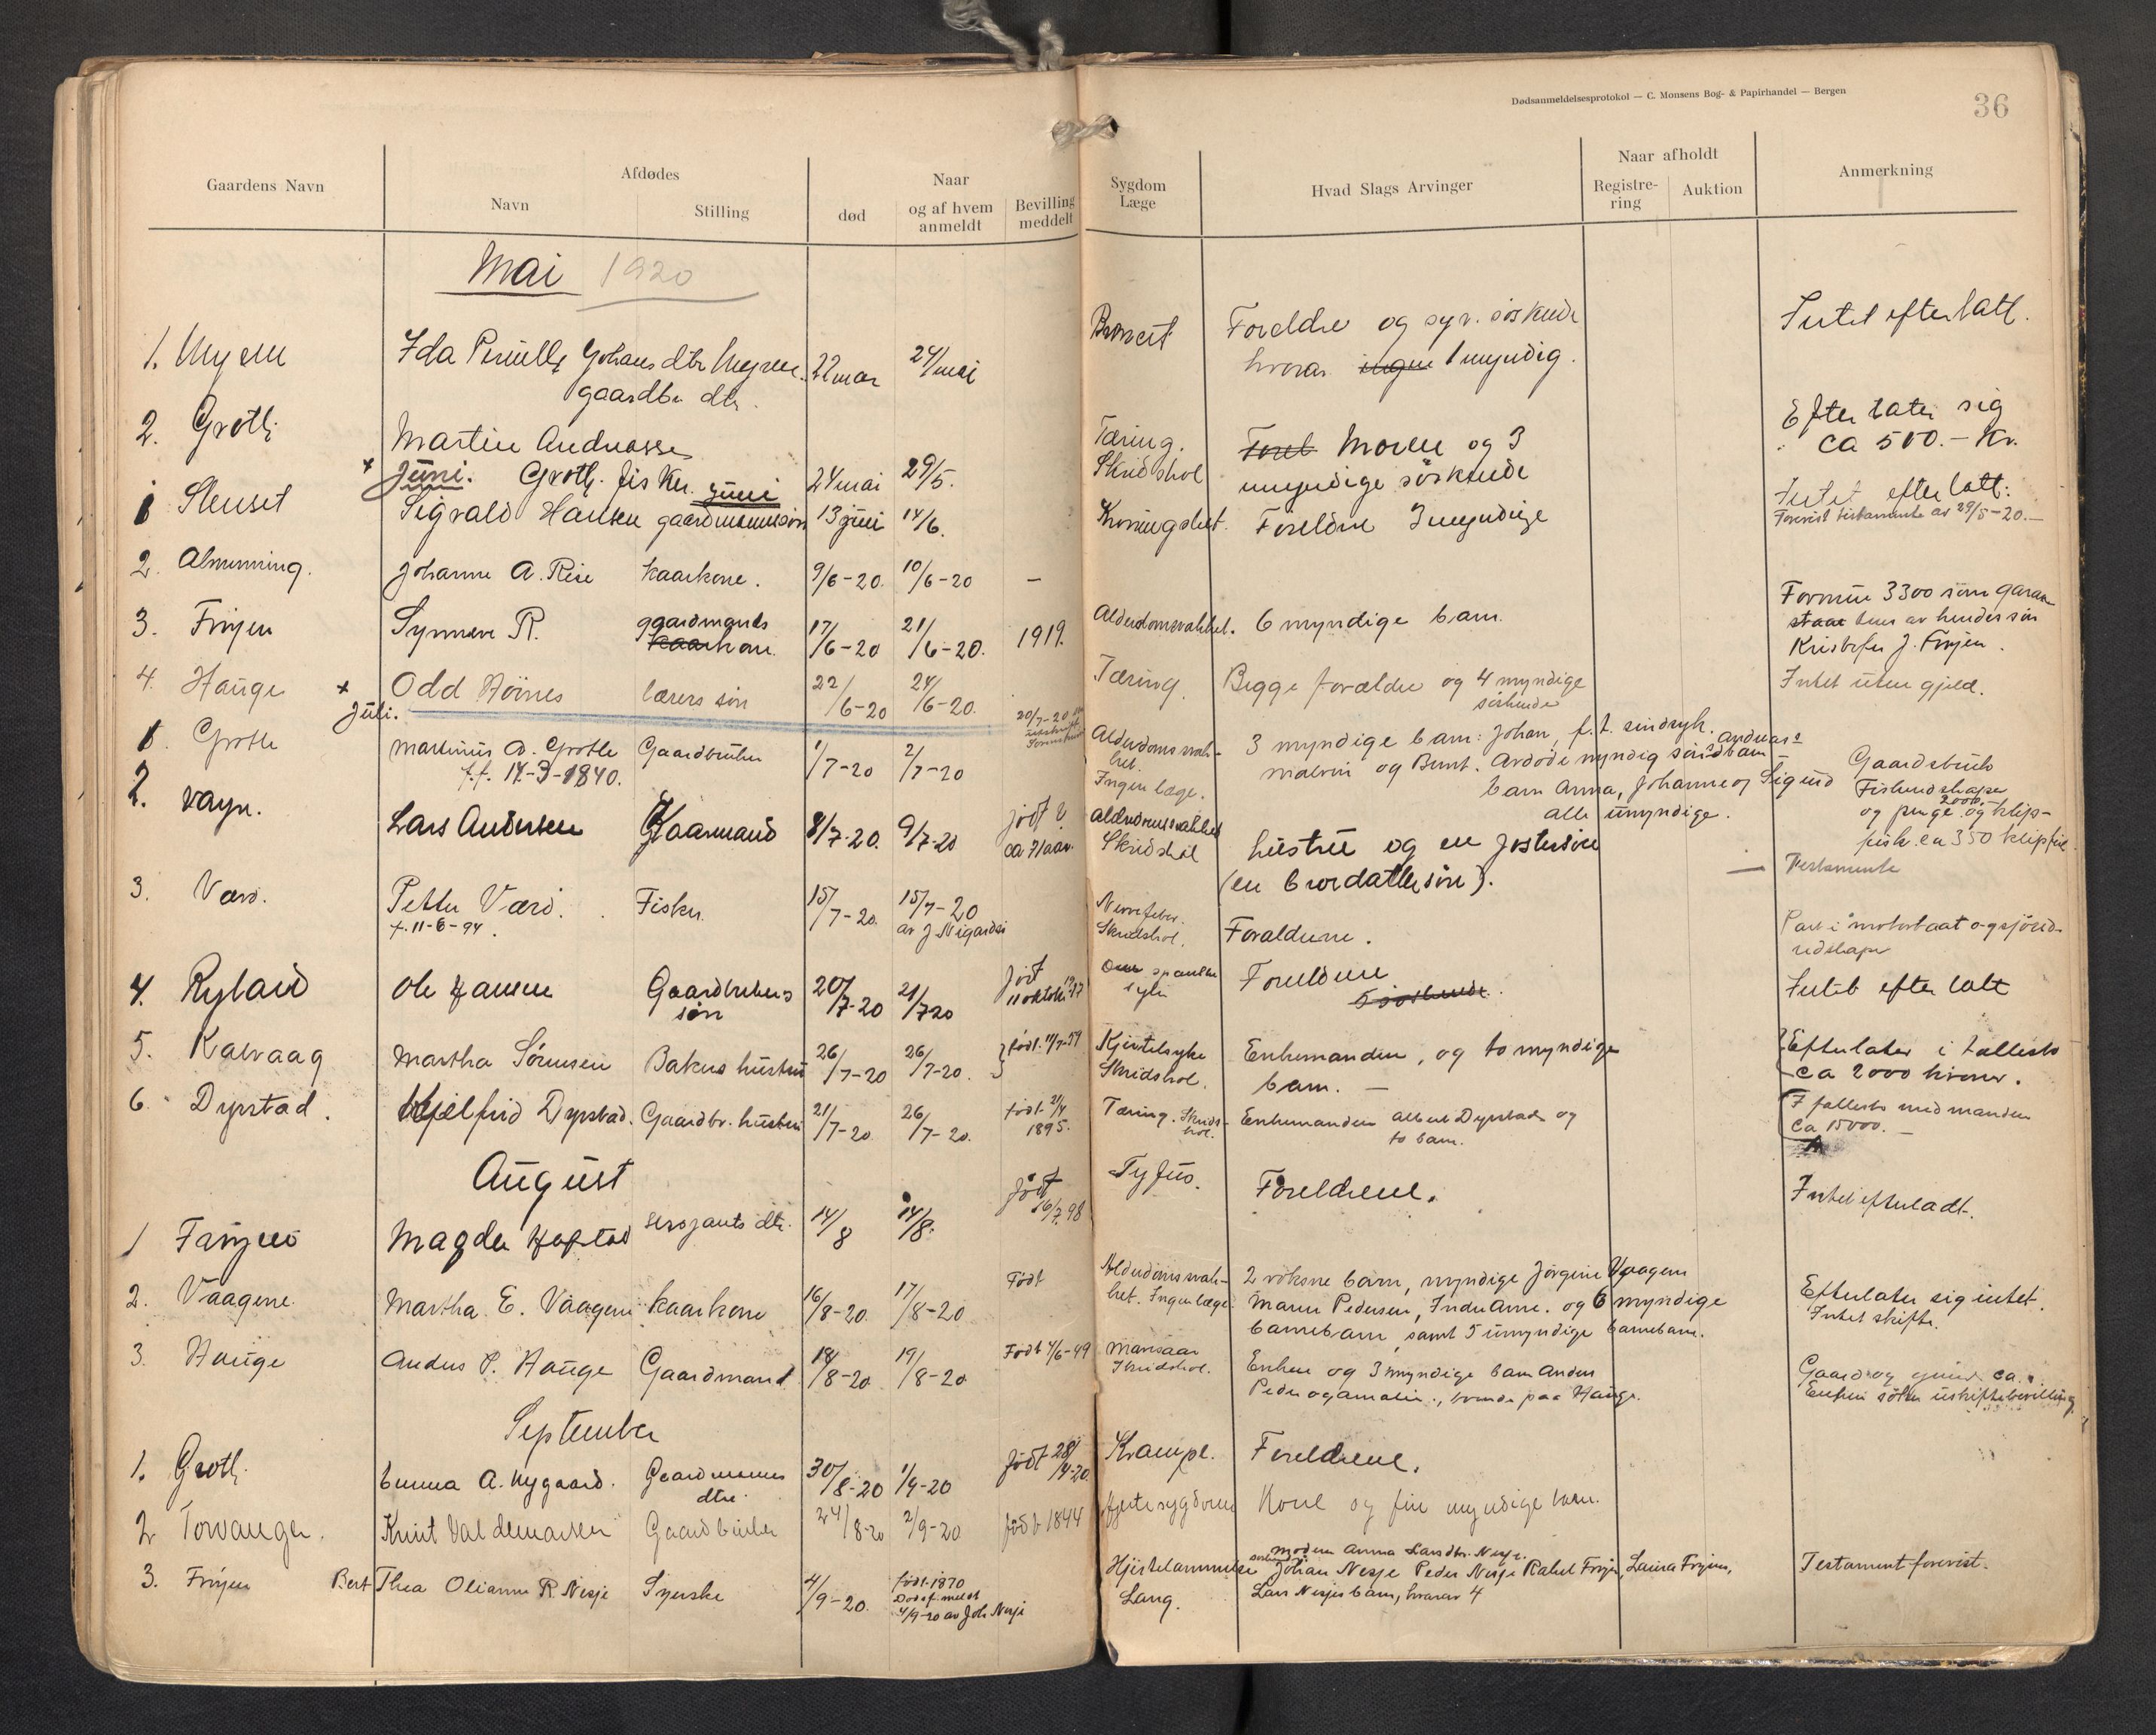 Dødsanmeldelsesprotokol — C. Monsens Bog- & Papirhandel — Bergen
36
Gaardens Navn
Afdødes
Navn
Stilling
Naar
død
og af hvem anmeldt
Bevilling meddelt
Sygdom Læge
Hvad Slags Arvinger
Naar afholdt
Registrering
Auktion
Anmerkning
Mai 1920
1. Myren Ida Pernille Johans dtr Myren 22 mai 24/mai Foreldre og syv søskende Intet efterlatt.
gaardbr dtr. hvorav ingen 1 myndig.
2. Grotle Martin Andreassen Tæring. Forel Moren og 3 Efterlater sig
Grotle. fisker. 24 mai 29/5. Skridshol umyndige søskende ca 500.- Kr.
+ Juni. juni
1 Steuset Sigvald Hansen gaardmannssøn 13 juni 14/6. Foreldre 3 myndige Intet efterlatt:
Forevist testamente av 29/5-20.—
2. Almenning. Johanne A. Rise Kaarkone. 9/6-20. 10/6-20 —
3. Frøyen Synneve R. gaardmands kaarkone. 17/6-20 21/6-20. 1919. Alderdomsvakhet. 6 myndige barn. Formue 3300 som
hos av hendes søn
Kristofer J. Frøyen.
4. Hauge + Odd Höines lærers søn 22/6-20 24/6-20. Tæring. Begge forældre og 4 myndige søskende Intet uten gjeld.
Juli. 20/7-20
1. Grotle Martinus A. Grotle Gaardbruker 1/7-20 2/7-20 Alderdomssvakhet. 3 myndige barn: Johan, f.t. sindsyk. Andreas
f.f. 14-3-1840. Ingen læge. Malvin og Bernt. Avdöde myndig
barn Anna, Johanne og Sigurd
alle umyndige.
Gaardsbruk
Fiskeredskaper
og penge 2000.- og klip-
fisk. ca 350 klipfisk
2. Vaagn. Lars Andersen Kaarmand 8/7-20. 9/7-20 født ? ca 71 aar. Alderdomssvakhet Skridshol hustru og en fostersön
(en brordattersön). — Testamente
3. Værö. Petter Værö. Fisker. 15/7-20. 15/7-20 Nervefeber. Forældrene. Part i motorbaat og sjöred-
f. 11-6-94. av J. Nigardsöi Skridshol. redskaper
4. Rylaud Ole Hansen Gaardbrukers søn 20/7-20 21/7 20 født 11 oktober 1917 spanske syke Foreldrene Intet efterlatt
5 søskende.
5. Kalvaag Martha Sörensen Bakers hustru 26/7-20 26/7-20. født. 11/7-59 Kjertelsyke Enkemanden, og to myndige Efterlater i fællesbo
Skridshol. barn. — ca 2000 kroner.
6. Dyrstad. Hjelfrid Dyrstad. Gaardbr. hustru 21/7-20. 26/7-20. født 21/4 1895. Tæring. Skridshol. Enkemanden Albert Dyrstad og to barn. I fællesbo med manden
ca 15000.—
August
1 Færøyen Magda Hofstad sersjants dtr. 14/8 14/8. født 16/7.98 Tyfus. Foreldrene. Intet efterladt.
2. Vaagene. Martha E. Vaagene Kaarkone 16/8-20. 17/8-20 Født Alderdomssvakhet. Ingen læge. 2 voksne barn, myndige Jörgine Vaagene
Maren Pedersen, Indre Arne. og 6 myndige
barnebarn, samt 5 umyndige barnebarn.
Efterlater sig intet.
Intet skifte.
3. Hauge Anders P. Hauge Gaardmand 18/8-20. 19/8-20 Født 4/6-49 Mavesaar Skridshol. Enken og 3 myndige barn Anders
Peder og Amalie., boende paa Hauge.
Gaard og grund ca.
Enken söker uskiftebevilling
September
1. Grotle Emma A. Nygaard. Gaardmanns dtr. 30/8-20 1/9-20 født 28/4-20. Krampe. Foreldrene.
2 Torvanger. Knut Valdemarsen Gaardbruker 24/8-20 2/9-20 født 1844 Hjertesygdom Kone og fire myndige barn.
3. Frøyen Bert Thea Olianne R. Nesje Syerske 4/9-20. født 1870 Hjertelammelse Lang. Moderen Anna Larsdtr. Nesje.
søsken Johan Nesje Peder Nesje Rakel Frøyen, Laura Frøyen,
Lars Nesjes barn, hvorav 4
Dödsf. meldt
4/9-20 av Joh. Nesje
Testament forevist.